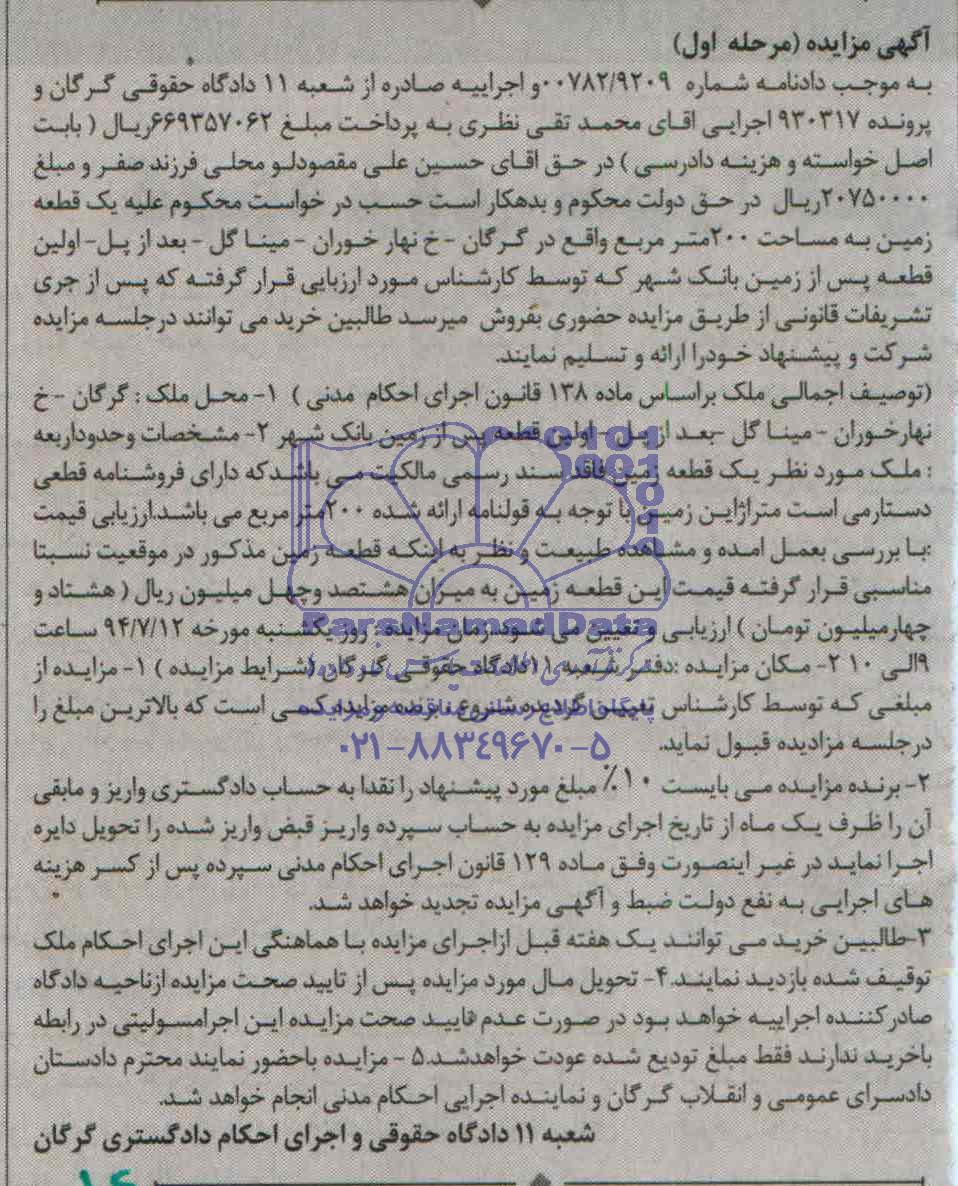 آگهی مزایده (مرحله اول)
به موجب دادنامه شماره ۰۰۷۸۲/۹۲۰۹ و اجراییه صادره از شعبه ۱۱ دادگاه حقوقی گرگان و
پرونده ۹۳۰۳۱۷ اجرایی اقای محمد تقی نظری به پرداخت مبلغ ۶۶۹۳۵۷۰۶۲ریال ( بابت
اصل خواسته و هزینه دادرسی ) در حق اقای حسین علی مقصودلو محلی فرزند صفر و مبلغ
۲۰۷۵۰۰۰۰ریال در حق دولت محکوم و بدهکار است حسب در خواست محکوم علیه یک قطعه
زمین به مساحت ۲۰۰متر مربع واقع در گرگان -خ نهار خوران - مینا گل - بعد از پل- اولین
قطعه پس از زمین بانک شهر که توسط کارشناس مورد ارزیابی قرار گرفته که پس از جری
تشریفات قانونی از طریق مزایده حضوری بفروش میرسد طالبین خرید می توانند درجلسه مزایده
شرکت و پیشنهاد خودرا ارائه و تسلیم نمایند.
(توصیف اجمالی ملک براساس ماده ۱۳۸ قانون اجرای احکام مدنی ) ۱- محل ملک : گرگان -خ
نهارخوران - مینا گل -بعد از پل - اولین قطعه پس از زمین بانک شهر ۲- مشخصات وحدوداربعه
: ملک مورد نظر یک قطعه زمین فاقد سند رسمی مالکیت می باشدکه دارای فروشنامه قطعی
دستارمی است متراژاین زمین با توجه به قولنامه ارائه شده ۲۰۰متر مربع می باشد.ارزیابی قیمت
:با بررسی بعمل امده و مشاهده طبیعت و نظر به اینکه قطعه زمین مذکور در موقعیت نسبتا
مناسبی قرار گرفته قیمت این قطعه زمین به میزان هشتصد وچهل میلیون ریال ( هشتاد و
چهارمیلیون تومان ) ارزیابی و تعیین می شود.زمان مزایده : روز یکشنبه مورخه ۹۴/۷/۱۲ ساعت
۹الی ۱۰ ۲- مکان مزایده :دفتر شعبه ۱۱دادگاه حقوقی گرگان (شرایط مزایده ) ۱- مزایده از
مبلغی که توسط کارشناس تعیین گردیده شروع ، برنده مزایده کسی است که بالاترین مبلغ را
درجلسه مزادیده قبول نماید.
۲- برنده مزایده می بایست ۱۰٪ مبلغ مورد پیشنهاد را نقدا به حساب دادگستری واریز و مابقی
آن را ظرف یک ماه از تاریخ اجرای مزایده به حساب سپرده واریز قبض واریز شده را تحویل دایره
اجرا نماید در غیر اینصورت وفق ماده ۱۲۹ قانون اجرای احکام مدنی سپرده پس از کسر هزینه
های اجرایی به نفع دولت ضبط و آگهی مزایده تجدید خواهد شد.
۳-طالبین خرید می توانند یک هفته قبل ازاجرای مزایده با هماهنگی این اجرای احکام ملک
توقیف شده بازدید نمایند.۴- تحویل مال مورد مزایده پس از تایید صحت مزایده ازناحیه دادگاه
صادرکننده اجراییه خواهد بود در صورت عدم تایید صحت مزایده این اجرامسولیتی در رابطه
باخرید ندارند فقط مبلغ تودیع شده عودت خواهدشد.۵ - مزایده باحضور نمایند محترم دادستان
دادسرای عمومی و انقلاب گرگان و نماینده اجرایی احکام مدنی انجام خواهد شد.
شعبه ۱۱ دادگاه حقوقی و اجرای احکام دادگستری گرگان
ParsNamadData
۰۲۱-۸۸۳۴۹۶۷۰-۵